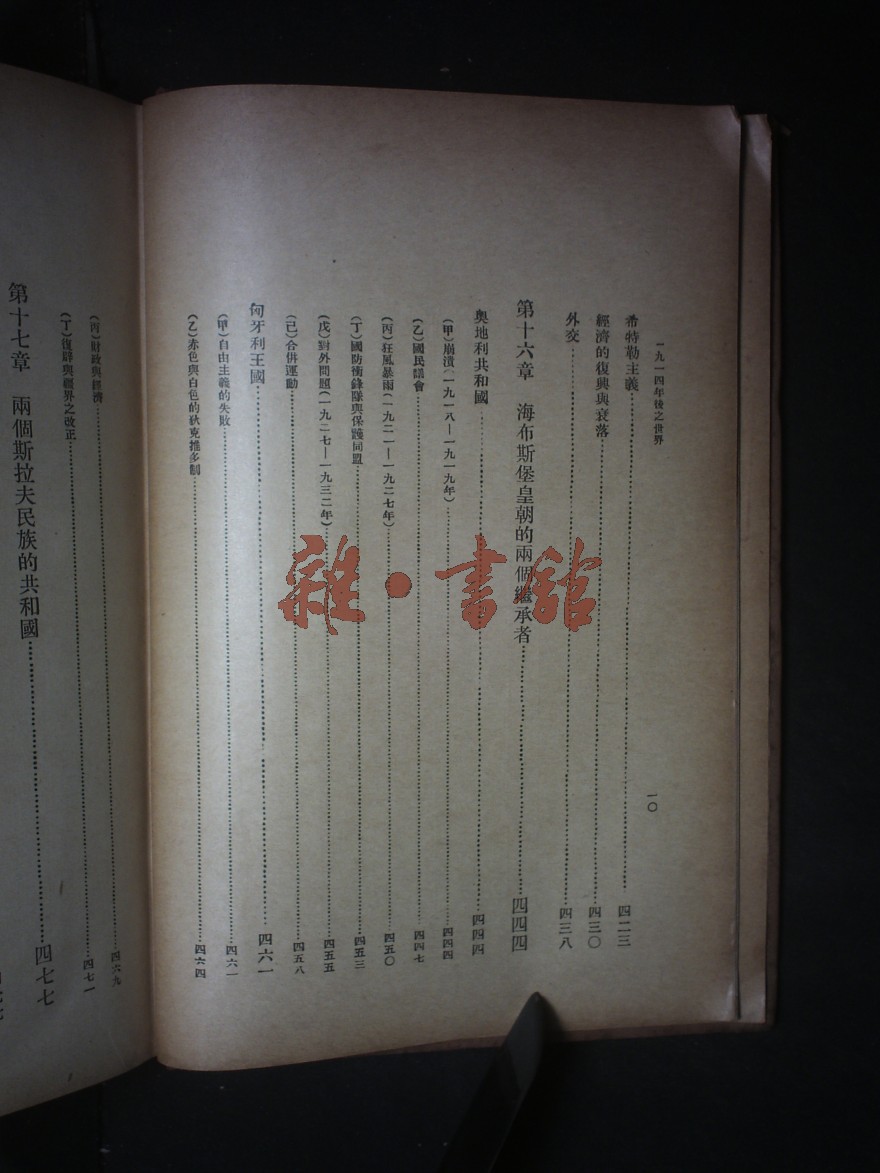 一九一四年後之世界
一〇
希特勒主義……四二三
經濟的復興與衰落……四三〇
外交……四三八
第十六章　海布斯堡皇朝的兩個繼承者……四四四
奧地利共和國……四四四
（甲）崩潰（一九一八—一九一九年）……四四四
（乙）國民議會……四四七
（丙）狂風暴雨（一九二一—一九二七年）……四五〇
（丁）國防衝鋒隊與保護同盟……四五三
（戊）對外問題（一九二七—一九三二年）……四五五
（己）合併運動……四五八
匈牙利王國……四六一
（甲）自由主義的失敗……四六一
（乙）赤色與白色的狄克推多制……四六四
（丙）財政與經濟……四六九
（丁）復辟與疆界之改正……四七一
第十七章　兩個斯拉夫民族的共和國……四七七
雜·書館